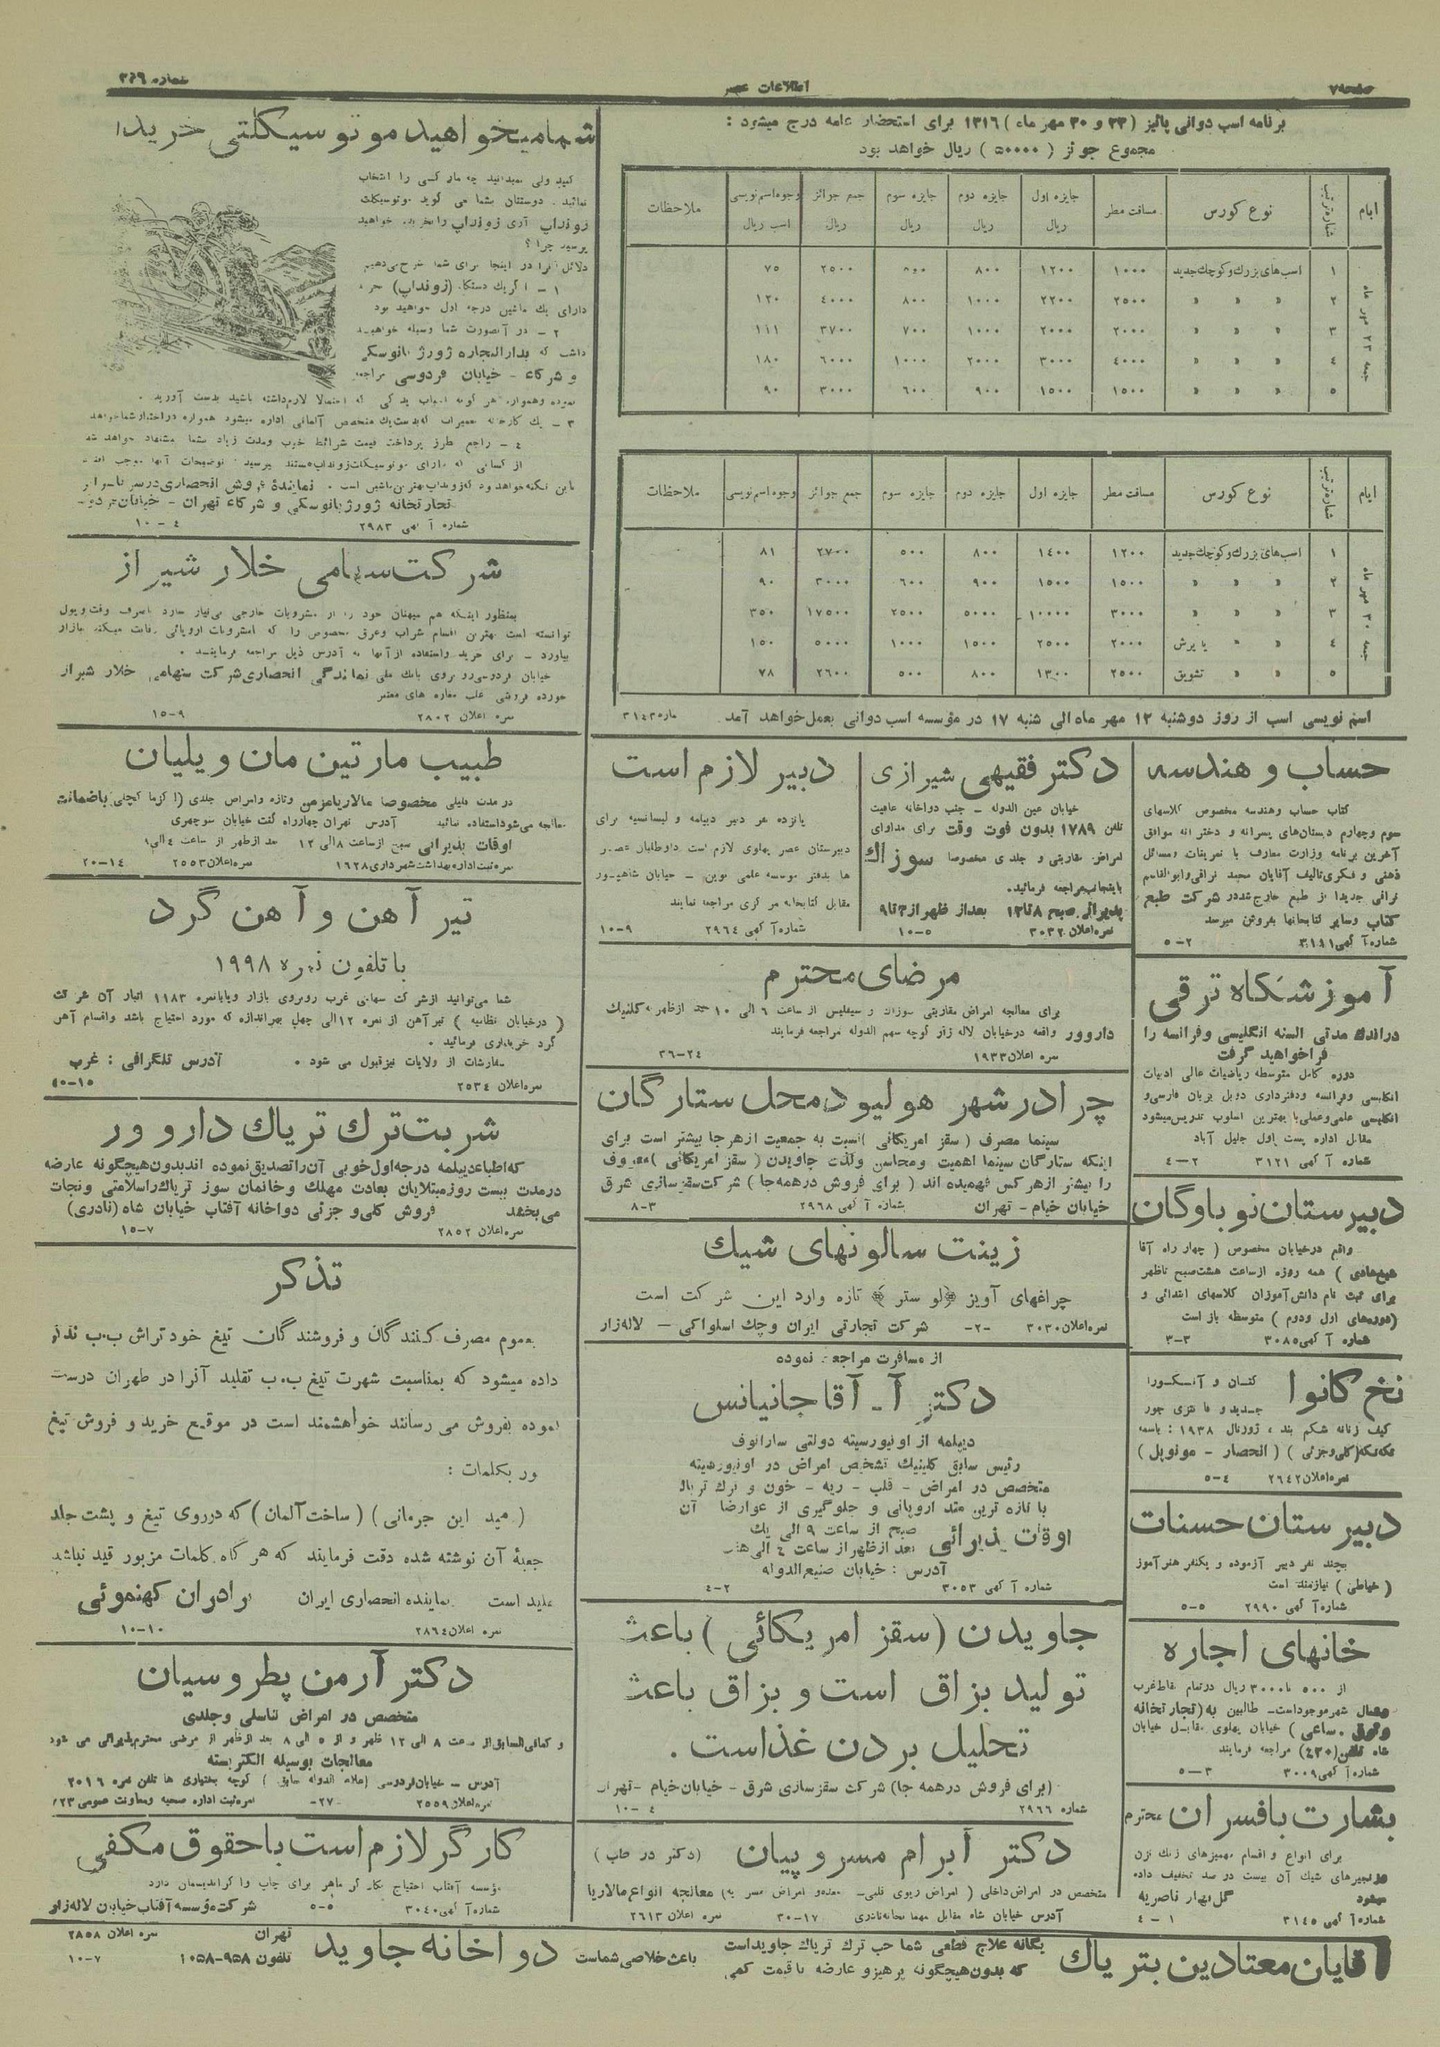 صفحه ۷
اطلاعات عصر
برنامه اسب دوانی پائیز (۲۳ و ۳۰ مهر ماه) ۱۳۱۶ برای استحضار عامه درج میشود :
مجموع جوئز (۵۰۰۰۰) ریال خواهد بود
ایام | شماره ترتیب | نوع کورس | مسافت مطر | جایزه اول ریال | جایزه دوم ریال | جایزه سوم ریال | جمع جوائز ریال | وجوه اسم نویسی اسب ریال | ملاحظات
جمعه ۲۳ مهر ماه
۱ اسب های بزرك و كوچك جدید ۱۰۰۰ ۱۲۰۰ ۸۰۰ ۵۰۰ ۲۵۰۰ ۷۵
۲ » » » ۲۵۰۰ ۲۲۰۰ ۱۰۰۰ ۸۰۰ ۴۰۰۰ ۱۲۰
۳ » » » ۲۰۰۰ ۲۰۰۰ ۱۰۰۰ ۷۰۰ ۳۷۰۰ ۱۱۱
۴ » » » ۴۰۰۰ ۳۰۰۰ ۲۰۰۰ ۱۰۰۰ ۶۰۰۰ ۱۸۰
۵ » » » ۱۵۰۰ ۱۵۰۰ ۹۰۰ ۶۰۰ ۳۰۰۰ ۹۰
ایام | شماره ترتیب | نوع کورس | مسافت مطر | جایزه اول | جایزه دوم | جایزه سوم | جمع جوائز | وجوه اسم نویسی | ملاحظات
جمعه ۳۰ مهر ماه
۱ اسب های بزرك و كوچك جدید ۱۲۰۰ ۱۴۰۰ ۸۰۰ ۵۰۰ ۲۷۰۰ ۸۱
۲ » » » ۱۵۰۰ ۱۵۰۰ ۹۰۰ ۶۰۰ ۳۰۰۰ ۹۰
۳ » » » ۳۰۰۰ ۱۰۰۰۰ ۵۰۰۰ ۲۵۰۰ ۱۷۵۰۰ ۳۵۰
۴ » » با پرش ۲۰۰۰ ۲۵۰۰ ۱۵۰۰ ۱۰۰۰ ۵۰۰۰ ۱۵۰
۵ » » تشویق ۲۵۰۰ ۱۳۰۰ ۸۰۰ ۵۰۰ ۲۶۰۰ ۷۸
اسم نویسی اسب از روز دوشنبه ۱۲ مهر ماه الی شنبه ۱۷ در مؤسسه اسب دوانی بعمل خواهد آمد. ۳۱۴۳
حساب و هندسه
کتاب حساب وهندسه مخصوص کلاسهای
سوم وچهارم دبستان‌های پسرانه و دخترانه موافق
آخرین برنامه وزارت معارف با تمرینات ومسائل
ذهنی و فکری تالیف آقایان محمد نراقی وابوالقاسم
نراقی جدیدا از طبع خارج شده در شرکت طبع
کتاب وسایر کتابخانها بفروش میرسد
شماره آگهی ۳۱۸۱ ۲-۵
آموزشگاه ترقی
دراندك مدتی السنه انگلیسی وفرانسه را
فراخواهید گرفت
دوره کامل متوسطه ریاضیات عالی ادبیات
انگلیسی وفرانسه ودفترداری دوبل بزبان فارسی و
انگلیسی علمی وعملی با بهترین اسلوب تدریس میشود
مقابل اداره پست اول جلیل آباد
شماره آگهی ۳۱۲۱ ۲-۴
دبیرستان نوباوگان
واقع درخیابان مخصوص (چهار راه آقا
شیخ هادی) همه روزه ازساعت هشت صبح تاظهر
برای ثبت نام دانش آموزان کلاسهای ابتدائی و
(دوره‌های اول ودوم) متوسطه باز است
شماره آگهی ۳۰۸۵ ۳-۳
نخ کانوا
کتان و
جدید و فانتزی جور
کیف زنانه شکم بند ، ژورنال ۱۹۳۸ :
(کلی وجزئی) (انحصار - مونوپل)
نمره اعلان ۲۶۴۲ ۴-۵
دبیرستان حسنات
بچند نفر دبیر آزموده و یکنفر هنرآموز
(خیاطی) نیازمند است
شماره آگهی ۲۹۹۰ ۵-۵
خانهای اجاره
از ۵۰۰ تا ۳۰۰۰ ریال درتمام نقاط غرب
وشمال شهر موجود است- طالبین به (تجارتخانه
وثوق ساعی) خیابان پهلوی مقابل خیابان
شاه تلفن (۴۳۰) مراجعه فرمایند
شماره آگهی ۳۰۰۹ ۳-۵
بشارت بافسران محترم
برای انواع و اقسام مهمیزهای زنك زن
وزنجیرهای شیك آن بیست در صد تخفیف داده
میشود گل بهار ناصریه
شماره آگهی ۳۱۴۵ ۱-۴
دکتر فقیهی شیرازی
خیابان عین الدوله - جنب دواخانه عافیت
تلفن ۱۷۸۹ بدون فوت وقت برای مداوای
امراض مقاربتی و جلدی مخصوصا سوزاك
باینجانب مراجعه فرمائید.
پذیرائی صبح ۸ تا ۱۲ بعد از ظهر از ۳ تا ۹
نمره اعلان ۳۰۳۲ ۵-۱۰
دبیر لازم است
پانزده نفر دبیر دیپلمه و لیسانسیه برای
دبیرستان عصر پهلوی لازم است داوطلبان عصر
ها بدفتر موسسه علمی نوین - خیابان شاهپور
مقابل کتابخانه مرکزی مراجعه نمایند
شماره آگهی ۲۹۶۴ ۹-۱۰
مرضای محترم
برای معالجه امراض مقاربتی سوزاك و سیفلیس از ساعت ۶ الی ۱۰ بعد ازظهر به کلنیك
داروور واقعه درخیابان لاله زار کوچه سهم الدوله مراجعه فرمایند
نمره اعلان ۱۹۳۳ ۲۴-۲۶
چرا در شهر هولیود محل ستارگان
سینما مصرف (سقز امریکائی) نسبت به جمعیت ازهرجا بیشتر است برای
اینکه ستارگان سینما اهمیت ومحاسن ولذت جاویدن (سقز امریکائی) معروف
را بیشتر ازهرکس فهمیده اند (برای فروش درهمه جا) شرکت سقزسازی شرق
خیابان خیام - تهران شماره آگهی ۲۹۶۸ ۳-۸
زینت سالونهای شیك
چراغهای آویز «لوستر» تازه وارد این شرکت است
نمره اعلان ۳۰۳۰ -۲- شرکت تجارتی ایران وچك اسلواکی - لاله زار
از مسافرت مراجعت نموده
دکتر آ. آقاجانیانس
دیپلمه از اونیورسیته دولتی ساراتوف
رئیس سابق کلینیك تشخیص امراض در اونیورسیته
متخصص در امراض - قلب - ریه - خون و ترك تریاك
با تازه ترین متد اروپائی و جلوگیری از عوارض آن
اوقات پذیرائی صبح از ساعت ۹ الی یك
بعد ازظهر از ساعت ۴ الی هفت
آدرس : خیابان صنیع الدوله
شماره آگهی ۳۰۵۳ ۲-۴
جاویدن (سقز امریکائی) باعث
تولید بزاق است و بزاق باعث
تحلیل بردن غذاست .
(برای فروش درهمه جا) شرکت سقزسازی شرق - خیابان خیام - تهران
شماره ۲۹۶۶ ۴-۱۰
دکتر آبرام مسروپیان (دکتر در طب)
متخصص در امراض داخلی (امراض ریوی قلبی- معده و امراض غیره) معالجه انواع مالاریا
آدرس خیابان شاه مقابل مهمانخانه نادری ۱۷-۳۰ نمره اعلان ۲۶۱۳
شما میخواهید موتوسیکلتی خریداری
کنید ولی نمیدانید چه مارکسی را انتخاب
نمائید. دوستتان بشما می گوید موتوسیکلت
زونداپ آری زونداپ را بخرید. خواهید
پرسید چرا ؟
دلائل آنرا در اینجا برای شما شرح میدهیم
۱ - اگر یك دستگاه (زونداپ) خرید
دارای یك ماشین درجه اول خواهید بود
۲ - در آنصورت شما وسیله خواهید
داشت که بدارالتجاره ژورژ یانوسکی
و شرکاء - خیابان فردوسی مراجعه
نموده وهمواره هر گونه اسباب یدکی که احتمالا لازم داشته باشید بدست آورید .
۳ - یك کارخانه تعمیرات که بدست یك متخصص آلمانی اداره میشود همواره دراختیار شما خواهد
۴ - راجع بطرز پرداخت قیمت شرائط خوب ومدت زیاد بشما پیشنهاد خواهد شد
از کسانی که دارای موتوسیکلت زونداپ هستند بپرسید توضیحات آنها موجب
این نکته خواهد بود که زونداپ بهترین ماشین است . نمایندهٔ فروش انحصاری در سرتاسر ایران
تجارتخانه ژورژ یانوسکی و شرکاء تهران - خیابان فردوسی
شماره آگهی ۲۹۸۳ ۴-۱۰
شرکت سهامی خلار شیراز
بمنظور اینکه هم میهنان خود را از مشروبات خارجی بی‌نیاز دارد باصرف وقت وپول
توانسته است بهترین اقسام شراب وعرق مخصوص را که بامشروبات اروپائی رقابت میکند ببازار
بیاورد - برای خرید واستفاده از آنها به آدرس ذیل مراجعه فرمایند .
خیابان فردوسی روبروی بانك ملی نمایندگی انحصاری شرکت سهامی خلار شیراز
خورده فروشی اغلب مغازه های معتبر
نمره اعلان ۲۸۰۲ ۹-۱۵
طبیب مارتین مان ویلیان
در مدت قلیلی مخصوصا مالاریا مزمن وتازه وامراض جلدی (اگزما کچلی) باضمانت
معالجه می‌شود استفاده نمائید آدرس تهران چهارراه گفت خیابان سوچهری
اوقات پذیرائی صبح از ساعت ۸ الی ۱۲ بعد ازظهر از ساعت ۴ الی ۸
نمره ثبت اداره بهداشت شهرداری ۱۶۲۸ نمره اعلان ۲۵۵۳ ۱۴-۲۰
تیر آهن و آهن گرد
با تلفون نمره ۱۹۹۸
شما می‌توانید ازشرکت سهامی غرب روبروی بازار ویابا نمره ۱۱۸۳ انبار آن شرکت
(درخیابان نظامیه) تیر آهن از نمره ۱۲ الی چهل بهراندازه که مورد احتیاج باشد واقسام آهن
گرد خریداری فرمائید .
سفارشات از ولایات نیز قبول می شود . آدرس تلگرافی : غرب
نمره اعلان ۲۵۳۴ ۱۵-۴۰
شربت ترك تریاك داروور
که اطباء دیپلمه درجه اول خوبی آن را تصدیق نموده اند بدون هیچگونه عارضه
درمدت بیست روز مبتلایان بعادت مهلك وخانمان سوز تریاك راسلامتی ونجات
می‌بخشد فروش کلی و جزئی دواخانه آفتاب خیابان شاه (نادری)
نمره اعلان ۲۸۵۲ ۷-۱۵
تذکر
بعموم مصرف کنندگان و فروشندگان تیغ خود تراش ب.ب تذکر
داده میشود که بمناسبت شهرت تیغ ب.ب تقلید آنرا در طهران درست
نموده بفروش می رسانند خواهشمند است در موقع خرید و فروش تیغ
بکلمات :
(مید این جرمانی) (ساخت آلمان) که در روی تیغ و پشت جلد
جعبهٔ آن نوشته شده دقت فرمایند که هرگاه کلمات مزبور قید نباشد
تقلید است نماینده انحصاری ایران برادران کهنموئی
نمره اعلان ۲۸۶۴ ۱۰-۱۰
دکتر آرمن پطروسیان
متخصص در امراض تناسلی وجلدی
و کمافی السابق از ساعت ۸ الی ۱۲ ظهر و از ۵ الی ۸ بعد ازظهر از مرضی محترم پذیرائی می شود
معالجات بوسیله الکتریسته
آدرس - خیابان فردوسی (علاء الدوله سابق) کوچه بختیاری ها تلفن نمره ۲۰۱۶
نمره اعلان ۲۵۵۹ -۲۷ نمره ثبت اداره صحیه ومعاونت عمومی
کارگر لازم است با حقوق مکفی
مؤسسه آفتاب احتیاج بکارگر ماهر برای چاپ وا گراندیسمان دارد
شماره آگهی ۳۰۴۰ ۵-۵ شرکت مؤسسه آفتاب خیابان لاله زار
آقایان معتادین بتریاك
یگانه علاج قطعی شما حب ترك تریاك جاوید است
که بدون هیچگونه پرهیز و عارضه با قیمت کمی
باعث خلاصی شماست
دواخانه جاوید
تهران
تلفون ۹۵۸-۱۰۵۸
نمره اعلان ۲۸۵۸
۷-۱۰